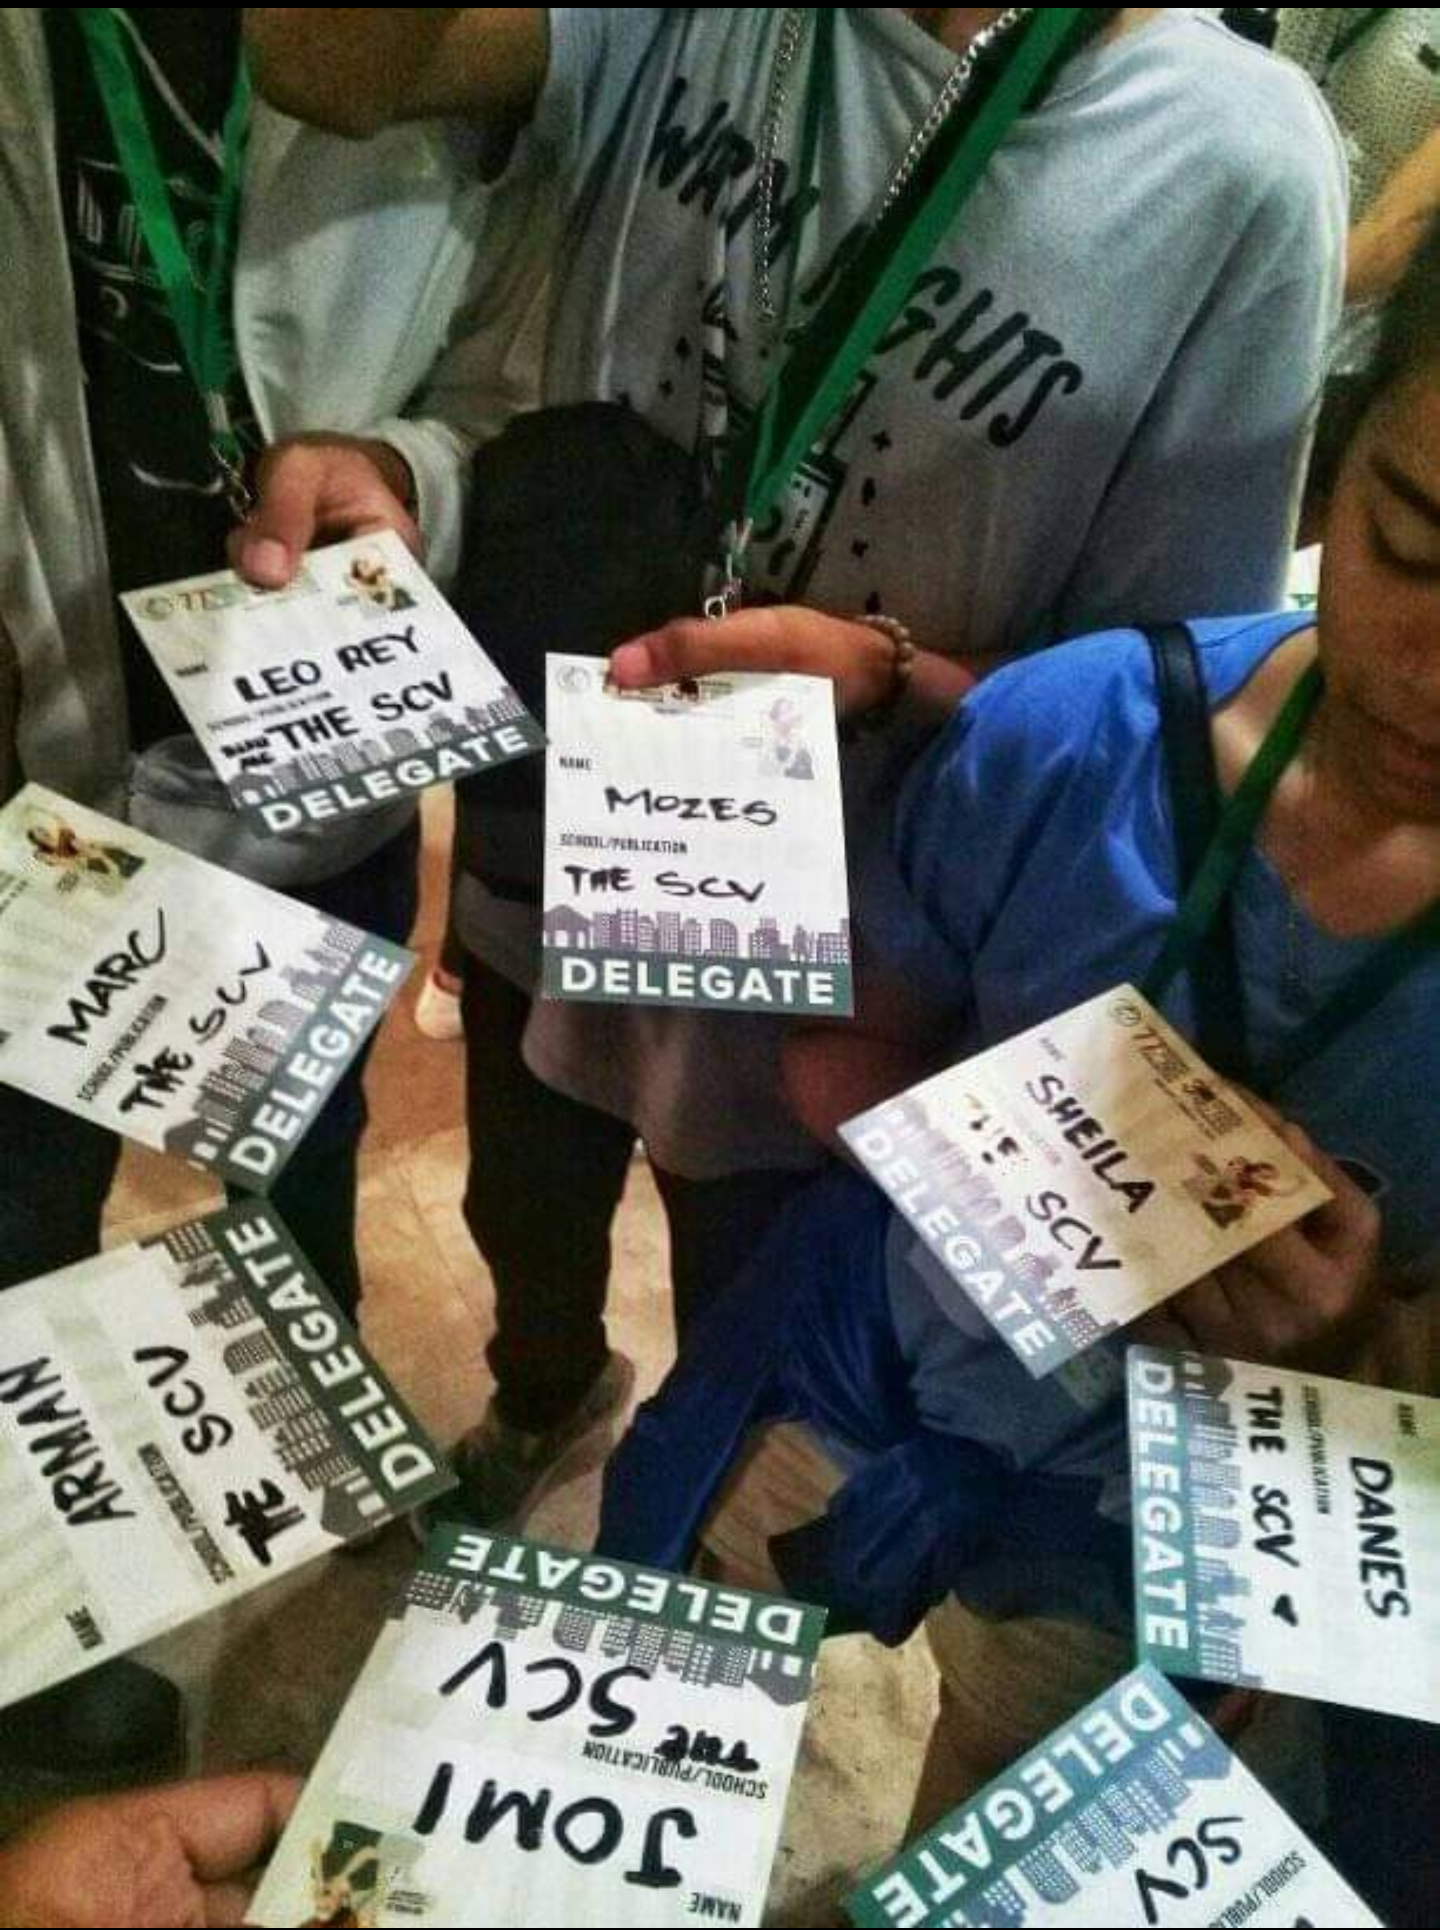 WRM
GHTS
77
NAME
LEO REY
SCHOOL/PUBLICATION
THE SCV
DELEGATE
NAME
MOZES
SCHOOL/PUBLICATION
THE SCV
DELEGATE
MARC
SCHOOL/PUBLICATION
THE SCV
DELEGATE
77
NAME
SHEILA
THE SCV
DELEGATE
NAME
ARMAN
SCHOOL/PUBLICATION
THE SCV
DELEGATE
NAME
DANES
SCHOOL/PUBLICATION
THE SCV
DELEGATE
NAME
JOMI
SCHOOL/PUBLICATION
THE SCV
DELEGATE
SCHOOL/PUBLIC
SCV
DELEGATE